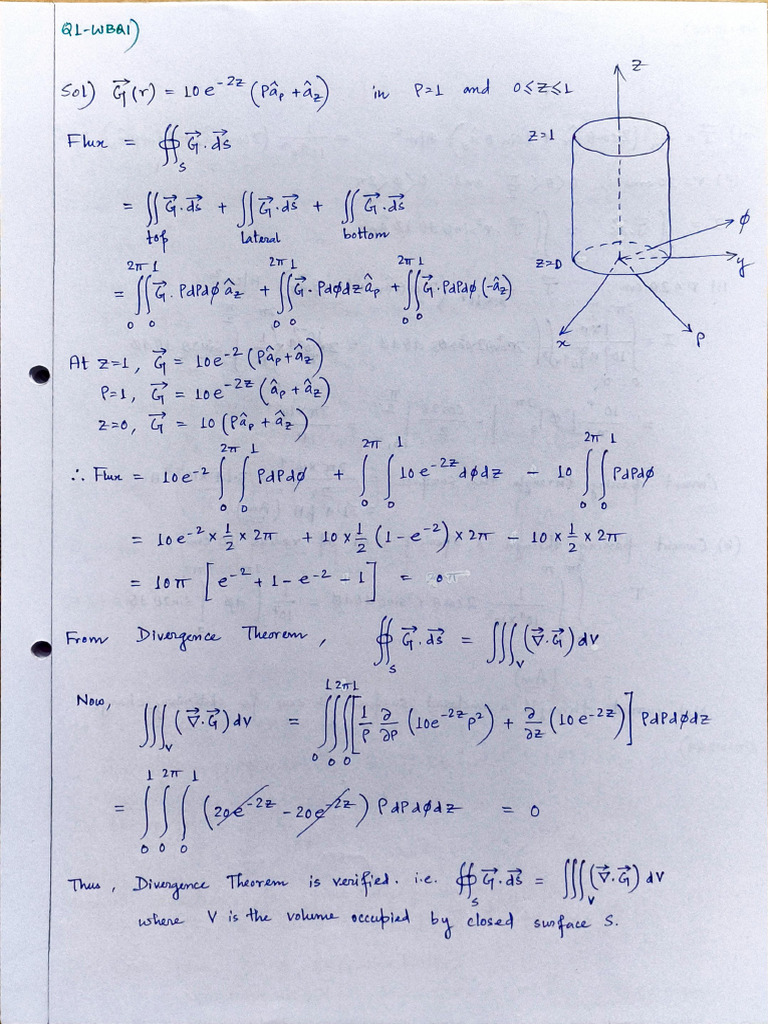 Q1-WBQ1)
Sol) G⃗(r) = 10e^{-2z} (ρâ_ρ + â_z) in ρ=1 and 0≤z≤1
Flux = ∯_S G⃗.ds⃗
= ∬_{top} G⃗.ds⃗ + ∬_{lateral} G⃗.ds⃗ + ∬_{bottom} G⃗.ds⃗
= ∫_0^{2π}∫_0^1 G⃗.ρdρdϕ â_z + ∫_0^{2π}∫_0^1 G⃗.ρdϕdz â_ρ + ∫_0^{2π}∫_0^1 G⃗.ρdρdϕ.(-â_z)
z
z=1
z=0
ϕ
y
x
ρ
At z=1, G⃗ = 10e^{-2} (ρâ_ρ + â_z)
ρ=1, G⃗ = 10e^{-2z} (â_ρ + â_z)
z=0, G⃗ = 10 (ρâ_ρ + â_z)
∴ Flux = 10e^{-2} ∫_0^{2π} ∫_0^1 ρdρdϕ + ∫_0^{2π} ∫_0^1 10e^{-2z} dϕdz - 10 ∫_0^{2π} ∫_0^1 ρdρdϕ
= 10e^{-2} × 1/2 × 2π + 10 × 1/2 (1 - e^{-2}) × 2π - 10 × 1/2 × 2π
= 10π [e^{-2} + 1 - e^{-2} - 1] = 0
From Divergence Theorem, ∯_S G⃗.ds⃗ = ∭_V (∇⃗.G⃗) dv
Now,
∭_V (∇⃗.G⃗) dv = ∫_0^1∫_0^{2π}∫_0^1 [1/ρ ∂/∂ρ (10e^{-2z} ρ²) + ∂/∂z (10e^{-2z})] ρdρdϕdz
= ∫_0^1 ∫_0^{2π} ∫_0^1 (20e^{-2z} - 20e^{-2z}) ρdρdϕdz = 0
Thus, Divergence Theorem is verified. i.e. ∯_S G⃗.ds⃗ = ∭_V (∇⃗.G⃗) dv
where V is the volume occupied by closed surface S.